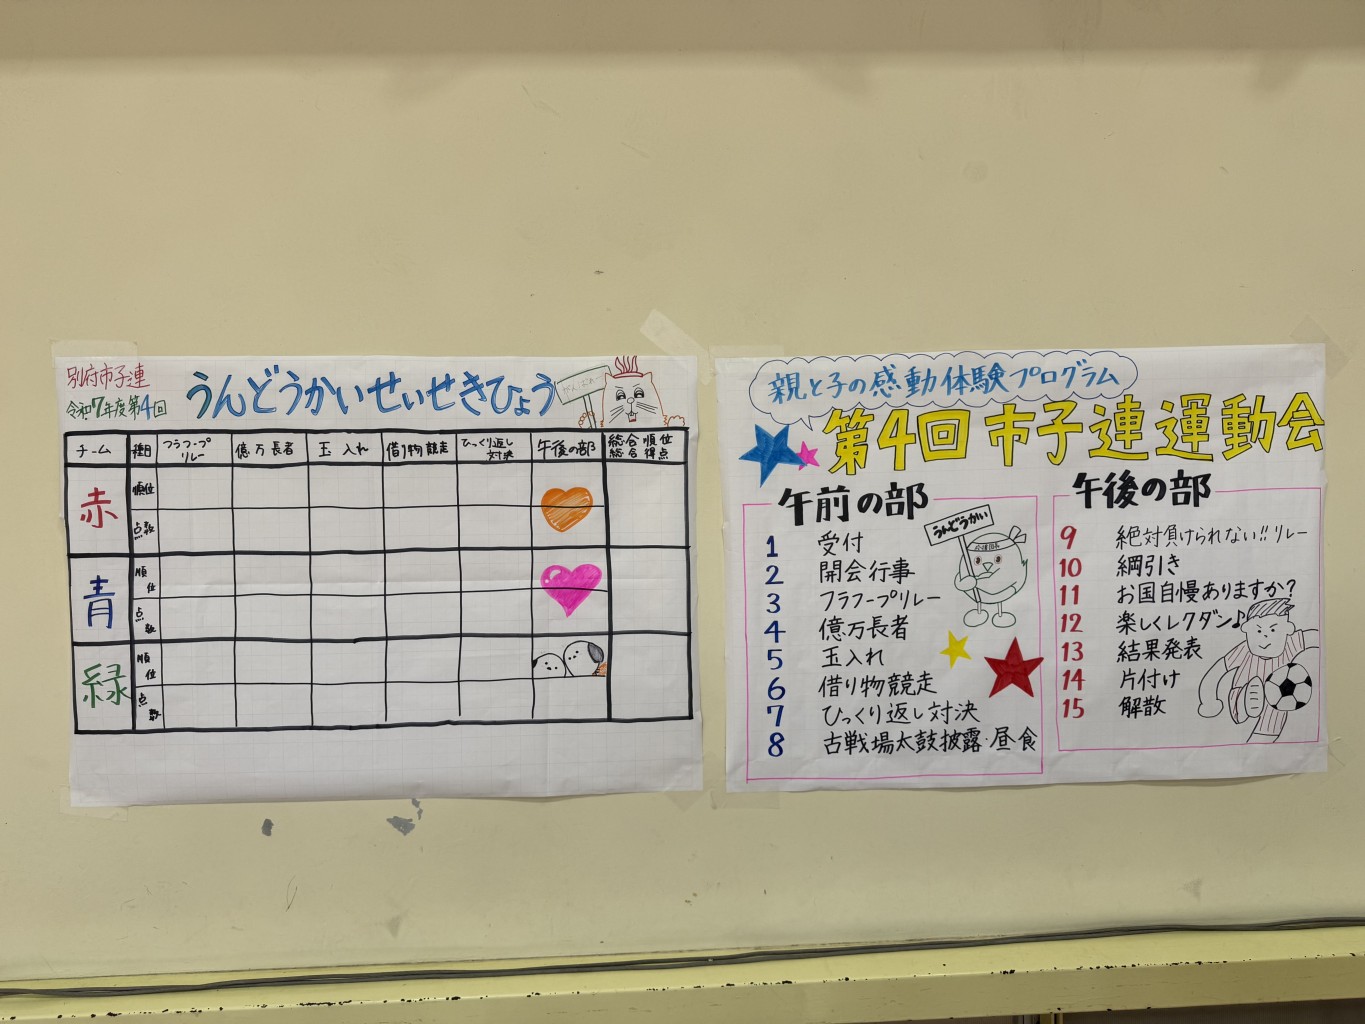 別府市子連
令和7年度第4回
うんどうかいせいせきひょう
がんばれ
チーム
種目
フラフープ
リレー
億万長者
玉入れ
借り物競走
ひっくり返し
対決
午後の部
総合順位
総合得点
赤
順位
点数
青
順位
点数
緑
順位
点数
親と子の感動体験プログラム
第4回市子連運動会
午前の部
1 受付
2 開会行事
3 フラフープリレー
4 億万長者
5 玉入れ
6 借り物競走
7 ひっくり返し対決
8 古戦場太鼓披露・昼食
うんどうかい
午後の部
9 絶対負けられない!!リレー
10 綱引き
11 お国自慢ありますか?
12 楽しくレクダン♪
13 結果発表
14 片付け
15 解散